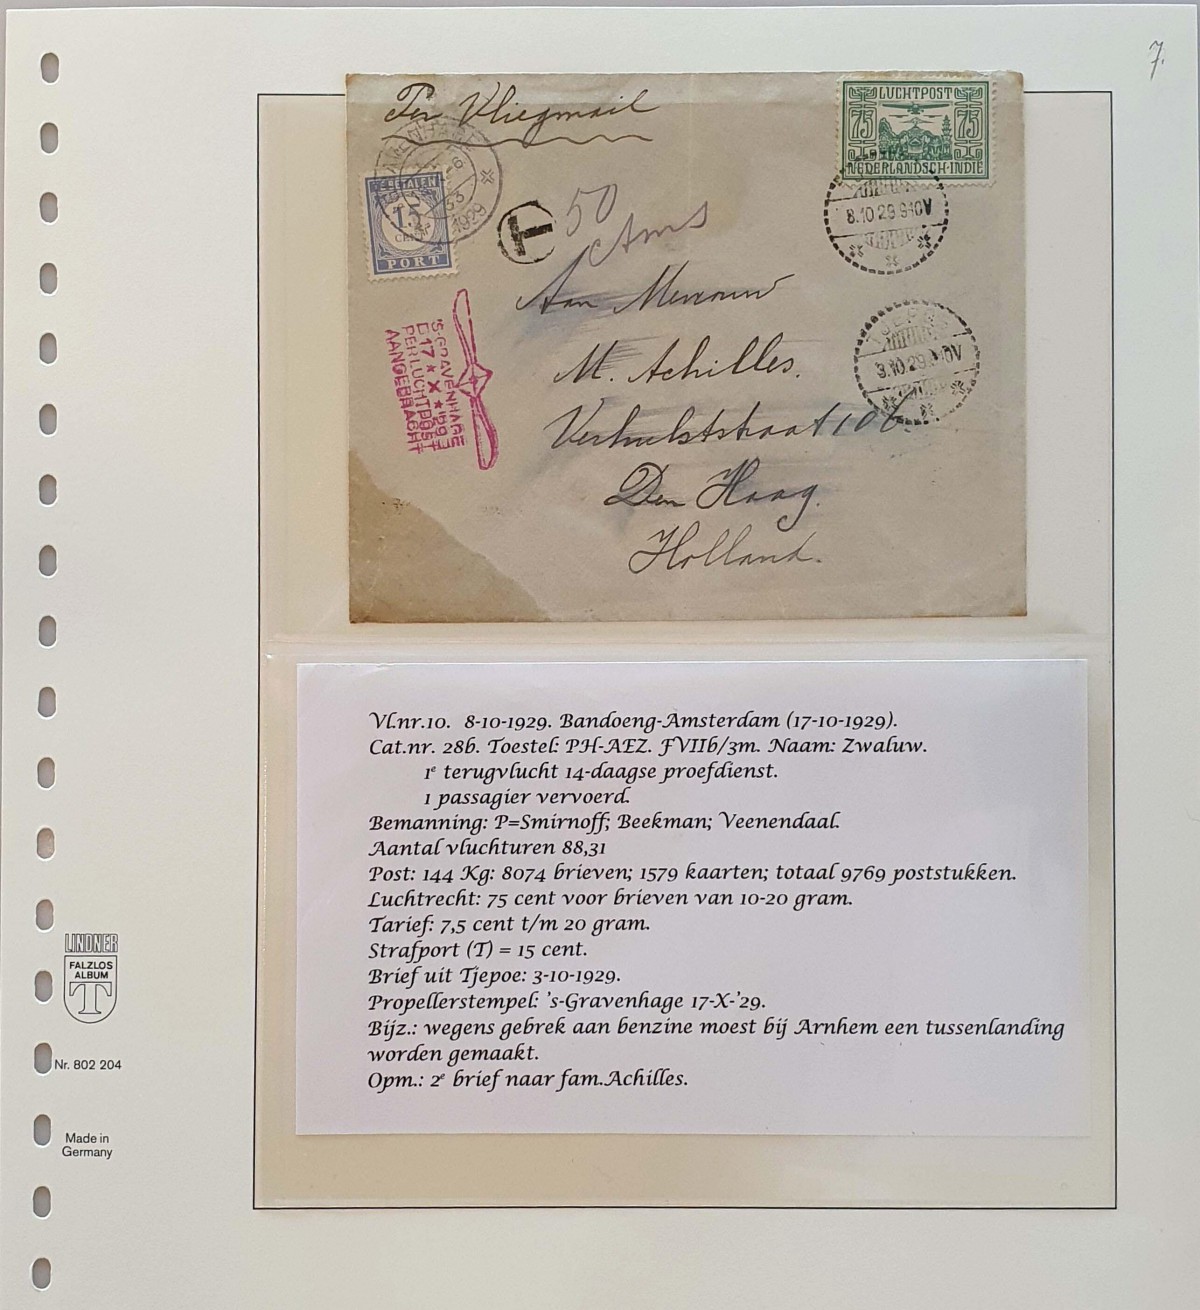 7.
Per Vliegmail
LUCHTPOST
75 75
NEDERLANDSCH-INDIE
8.10.29.9-10V
TE BETALEN
15
CENT
PORT
1929
T
50
ctms
Aan Mevrouw
M. Achilles.
Verhulststraat 106.
Den Haag.
Holland.
'S-GRAVENHAGE
17 * X * 1929
PER LUCHTPOST
AANGEBRACHT
Vl.nr.10. 8-10-1929. Bandoeng-Amsterdam (17-10-1929).
Cat.nr. 28b. Toestel: PH-AEZ. FVIIb/3m. Naam: Zwaluw.
1e terugvlucht 14-daagse proefdienst.
1 passagier vervoerd.
Bemanning: P=Smirnoff; Beekman; Veenendaal.
Aantal vluchturen 88,31
Post: 144 Kg: 8074 brieven; 1579 kaarten; totaal 9769 poststukken.
Luchtrecht: 75 cent voor brieven van 10-20 gram.
Tarief: 7,5 cent t/m 20 gram.
Strafport (T) = 15 cent.
Brief uit Tjepoe: 3-10-1929.
Propellerstempel: 's-Gravenhage 17-X-'29.
Bijz.: wegens gebrek aan benzine moest bij Arnhem een tussenlanding
worden gemaakt.
Opm.: 2e brief naar fam.Achilles.
LINDNER
FALZLOS
ALBUM
T
Nr. 802 204
Made in
Germany